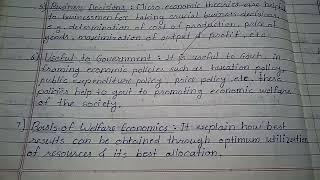 5) Business Decisions : Micro economic theories are helpful
to businessmen for taking crucial business decisions
i.e. determination of cost of production, price of
goods, maximization of output & profit, etc.
6) Useful to Government : It is useful to Govt. in
framing economic policies such as taxation policy,
public expenditure policy, price policy, etc. these
policies help to govt to promoting economic welfare
of the society.
7) Basis of Welfare Economics : It explain how best
results can be obtained through optimum utilization
of resources & its best allocation.